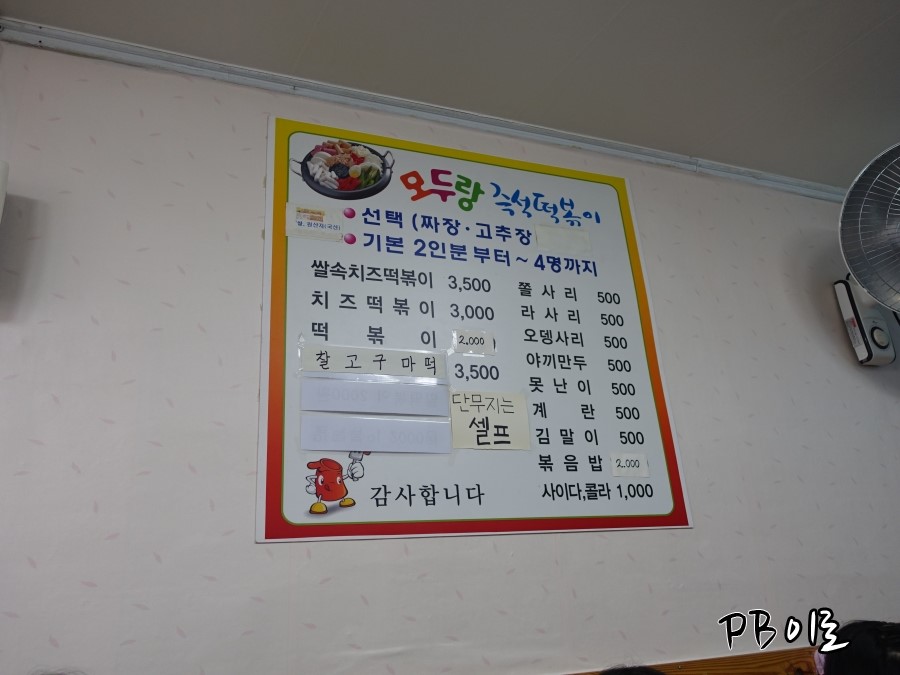 모두랑 즉석떡볶이
쌀, 원산지(국산)
선택 (짜장·고추장
기본 2인분 부터 ~ 4명까지
쌀속치즈떡볶이 3,500
치즈떡볶이 3,000
떡볶이 2.000
찰고구마떡 3,500
단무지는
셀프
쫄사리 500
라사리 500
오뎅사리 500
야끼만두 500
못난이 500
계란 500
김말이 500
볶음밥 2.000
사이다,콜라 1,000
감사합니다
PB이로